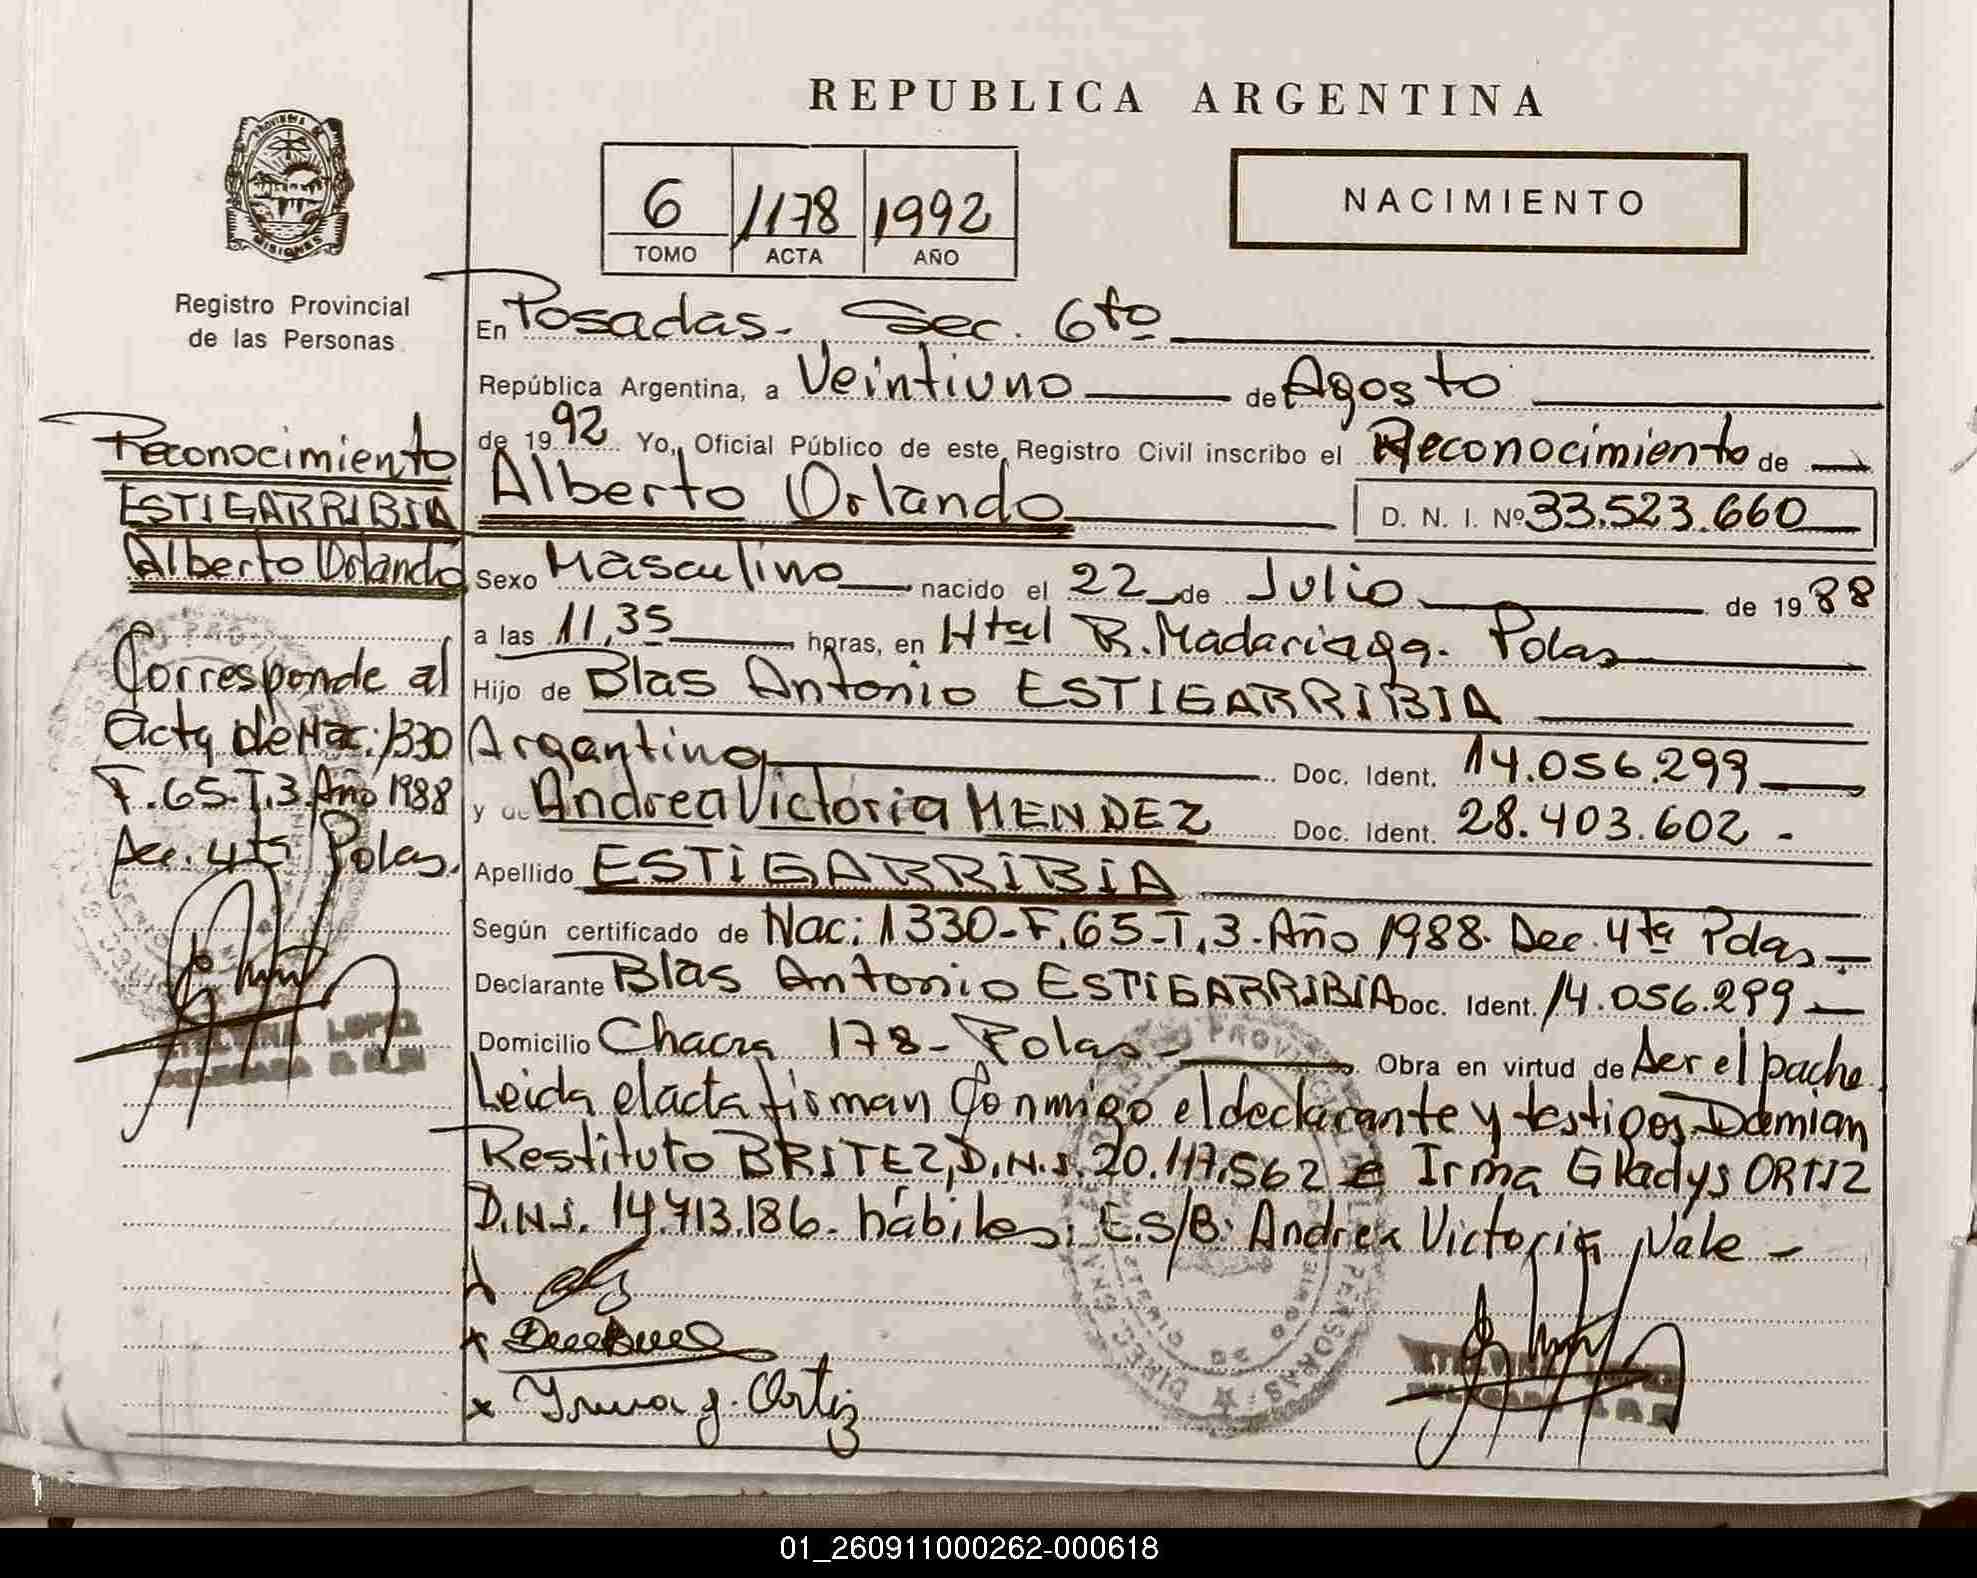 REPUBLICA ARGENTINA
PROVINCIA DE
MISIONES
6 1178 1992
TOMO ACTA AÑO
NACIMIENTO
Registro Provincial
de las Personas
Reconocimiento
ESTIGARRIBIA
Alberto Orlando
Corresponde al
Acta de Nac: 1330
F.65.T.3.Año 1988
Sec. 4ta Pdas.
LOPEZ
DELEGADA
En Posadas. Sec. 6to
República Argentina, a Veintiuno de Agosto
de 1992 Yo, Oficial Público de este Registro Civil inscribo el Reconocimiento de
Alberto Orlando D. N. I. Nº 33.523.660
Sexo Masculino nacido el 22 de Julio de 1988
a las 11,35 horas, en Htal R. Madariaga. Pdas
Hijo de Blas Antonio ESTIGARRIBIA
Argentino Doc. Ident. 14.056.299
y de Andrea Victoria MENDEZ Doc. Ident. 28.403.602 -
Apellido ESTIGARRIBIA
Según certificado de Nac: 1330-F.65-T.3-Año 1988. Sec. 4ta Pdas
Declarante Blas Antonio ESTIGARRIBIA Doc. Ident. 14.056.299
Domicilio Chacra 178- Pdas- Obra en virtud de ser el padre
Leida el acta firman Conmigo el declarante y testigos Damian
Restituto BRITEZ, D.N.I. 20.117.562 e Irma Gladys ORTIZ
D.N.I. 14.713.186. hábiles; E.S/B: Andrea Victoria Vale -
x
x
x Irma g. Ortiz
01_260911000262-000618